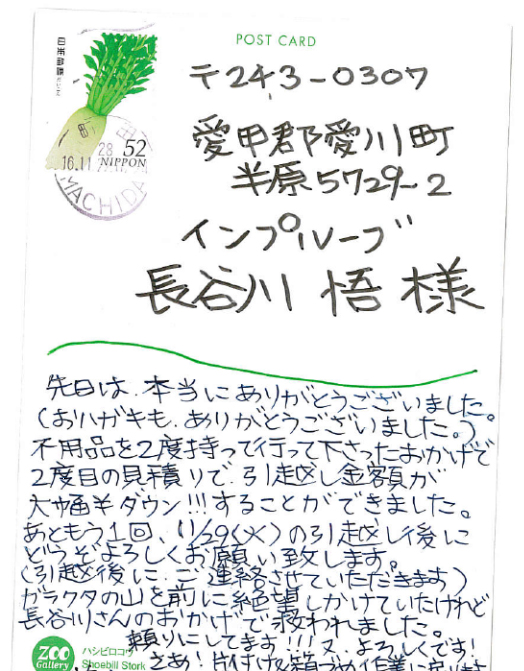 POST CARD
日本郵便
52
NIPPON
16.11.28
MACHIDA
〒243-0307
愛甲郡愛川町
半原5729-2
インプルーブ
長谷川 悟 様
先日は、本当にありがとうございました。
(おハガキも、ありがとうございました。)
不用品を2度持って行って下さったおかげで
2度目の見積りで、引越し金額が
大幅半ダウン!!!することができました。
あともう1回、11/29(火)の引越し後に
どうぞよろしくお願い致します。
(引越後に、ご連絡させていただきます)
ガラクタの山を前に絶望しかけていたけれど
長谷川さんのおかげで救われました。
頼りにしてます!!!又、よろしくです!
さあ!片付けと箱づめ作業に
ZOO
Gallery
ハシビロコウ
Shoebill Stork